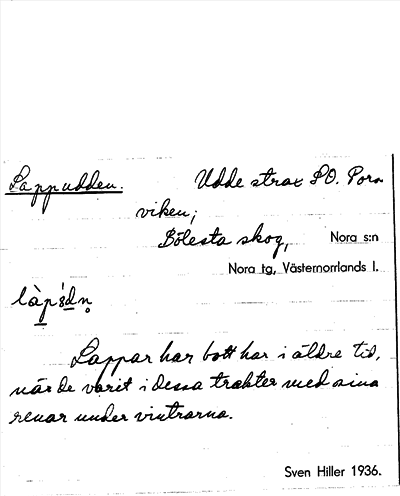 Lappudden. Udde strax SO. Porn
viken;
Bölesta skog, Nora s:n
Nora tg, Västernorrlands l.
Lappar har bott här i äldre tid,
när de varit i dessa trakter med sina
renar under vintrarna.
Sven Hiller 1936.